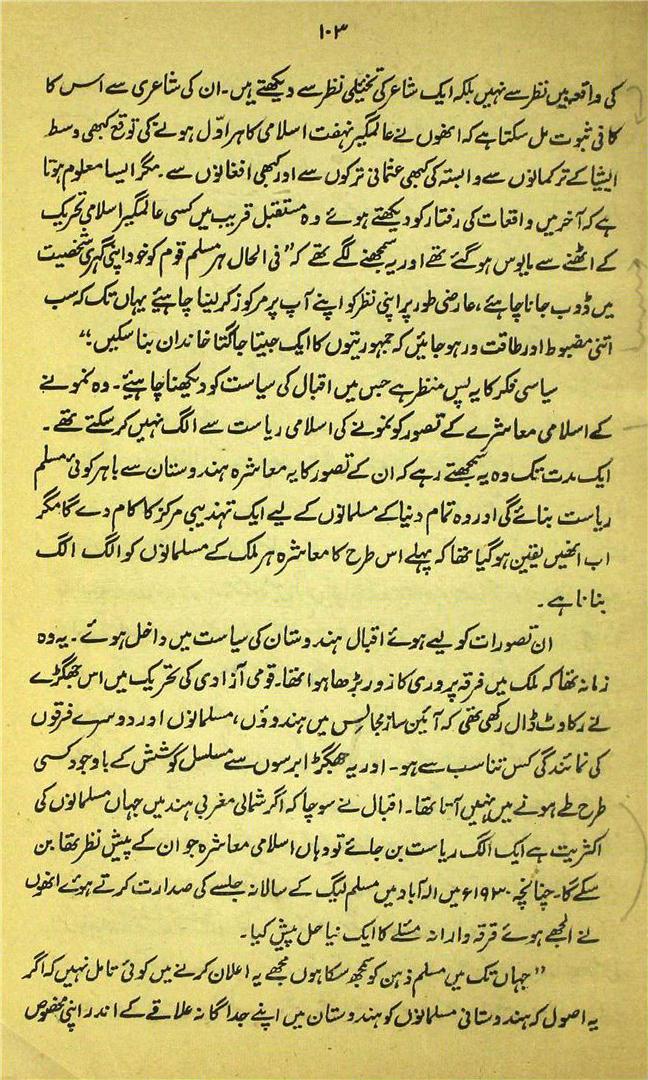 ۱۰۳
کی واقعہ بیں نظر سے نہیں بلکہ ایک شاعر کی تخئیلی نظر سے دیکھتے ہیں۔ ان کی شاعری سے اس کا
کافی ثبوت مل سکتا ہے کہ انھوں نے عالمگیر نہضت اسلامی کا ہراول ہونے کی توقع کبھی وسط
ایشیا کے ترکمانوں سے وابستہ کی کبھی عثمانی ترکوں سے اور کبھی افغانوں سے۔ مگر ایسا معلوم ہوتا
ہے کہ آخر میں واقعات کی رفتار کو دیکھتے ہوئے وہ مستقبل قریب میں کسی عالمگیر اسلامی تحریک
کے اٹھنے سے مایوس ہو گئے تھے اور یہ سمجھنے لگے تھے کہ "فی الحال ہر مسلم قوم کو خود اپنی گہری شخصیت
میں ڈوب جانا چاہئے، عارضی طور پر اپنی نظر کو اپنے آپ پر مرکوز کر لینا چاہئے یہاں تک کہ سب
اتنی مضبوط اور طاقت ور ہو جائیں کہ جمہوریتوں کا ایک جیتا جاگتا خاندان بنا سکیں۔"
سیاسی فکر کا یہ پس منظر ہے جس میں اقبال کی سیاست کو دیکھنا چاہئے۔ وہ نمونے
کے اسلامی معاشرے کے تصور کو نمونے کی اسلامی ریاست سے الگ نہیں کر سکتے تھے۔
ایک مدت تک وہ یہ سمجھتے رہے کہ ان کے تصور کا یہ معاشرہ ہندوستان سے باہر کوئی مسلم
ریاست بنائے گی اور وہ تمام دنیا کے مسلمانوں کے لیے ایک تہذیبی مرکز کا کام دے گا مگر
اب انھیں یقین ہو گیا تھا کہ پہلے اس طرح کا معاشرہ ہر ملک کے مسلمانوں کو الگ الگ
بنانا ہے۔
ان تصورات کو لیے ہوئے اقبال ہندوستان کی سیاست میں داخل ہوئے۔ یہ وہ
زمانہ تھا کہ ملک میں فرقہ پروری کا زور بڑھا ہوا تھا۔ قومی آزادی کی تحریک میں اس جھگڑے
نے رکاوٹ ڈال رکھی تھی کہ آئین ساز مجالس میں ہندوؤں، مسلمانوں اور دوسرے فرقوں
کی نمائندگی کس تناسب سے ہو۔ اور یہ جھگڑا برسوں سے مسلسل کوشش کے باوجود کسی
طرح طے ہونے میں نہیں آتا تھا۔ اقبال نے سوچا کہ اگر شمالی مغربی ہند میں جہاں مسلمانوں کی
اکثریت ہے ایک الگ ریاست بن جائے تو وہاں اسلامی معاشرہ جو ان کے پیش نظر تھا بن
سکے گا۔ چنانچہ ۱۹۳۰ء میں الہ آباد میں مسلم لیگ کے سالانہ جلسے کی صدارت کرتے ہوئے انھوں
نے الجھے ہوئے فرقہ وارانہ مسئلے کا ایک نیا حل پیش کیا۔
"جہاں تک میں مسلم ذہن کو سمجھ سکا ہوں مجھے یہ اعلان کرنے میں کوئی تامل نہیں کہ اگر
یہ اصول کہ ہندوستانی مسلمانوں کو ہندوستان میں اپنے جداگانہ علاقے کے اندر اپنی مخصوص